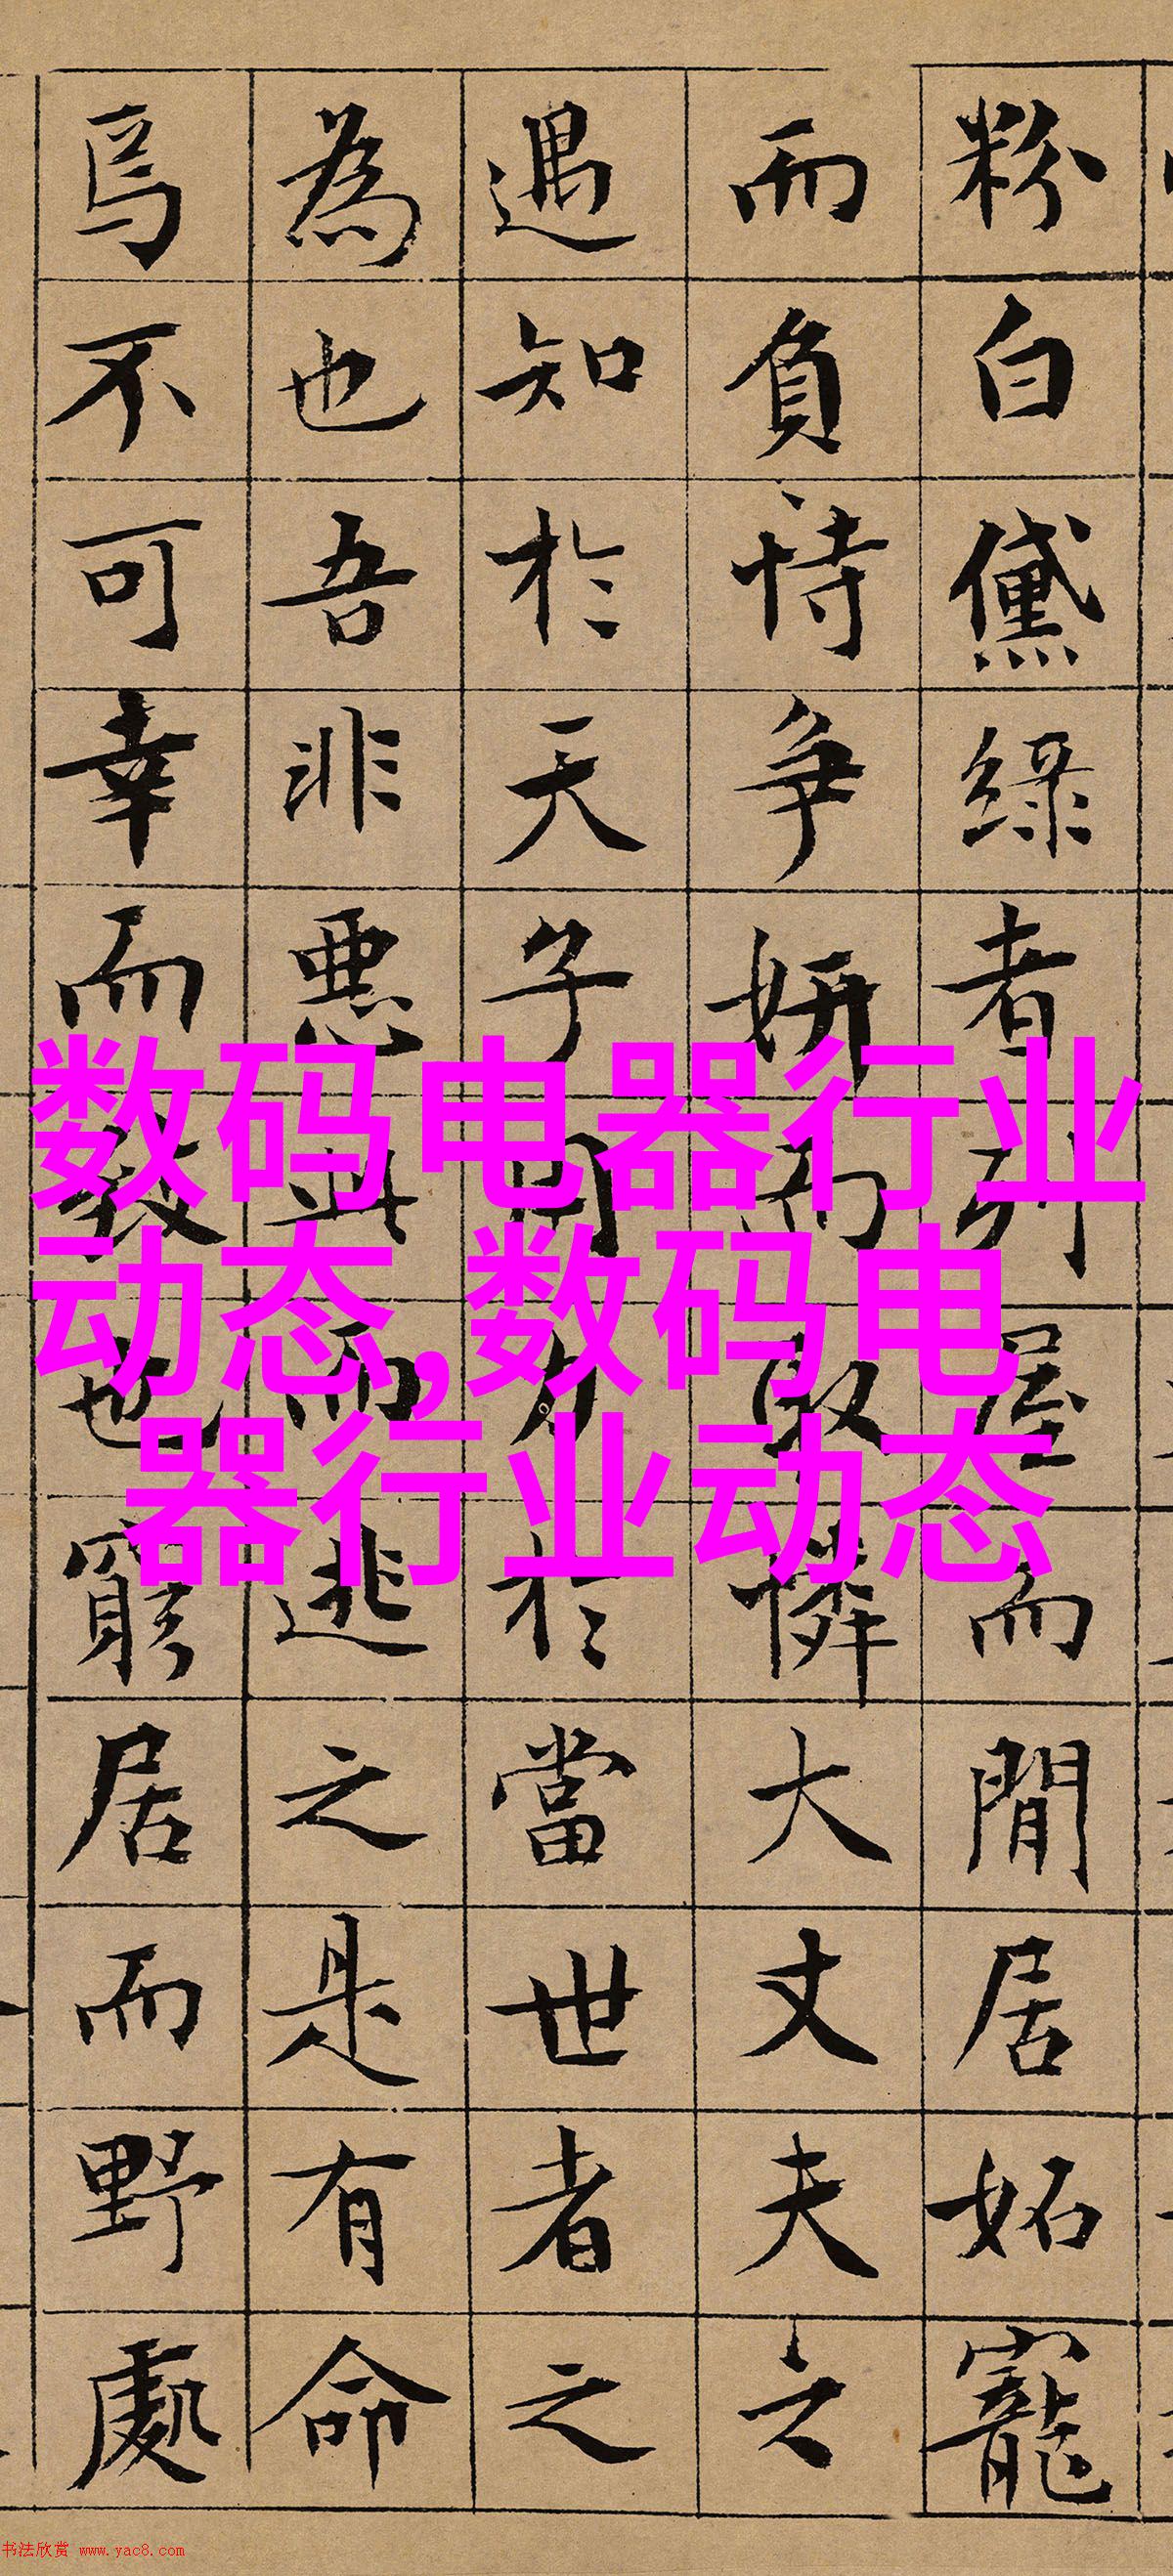 粉白黛綠者列屋而閒居妬寵
而負恃争妍而取憐大丈夫之
遇知於天子用力於當世者之
為也吾非悪此而逃之是有命
焉不可幸而致也窮居而野處
数码电器行业
动态,数码电
器行业动态
书法欣赏 www.yac8.com